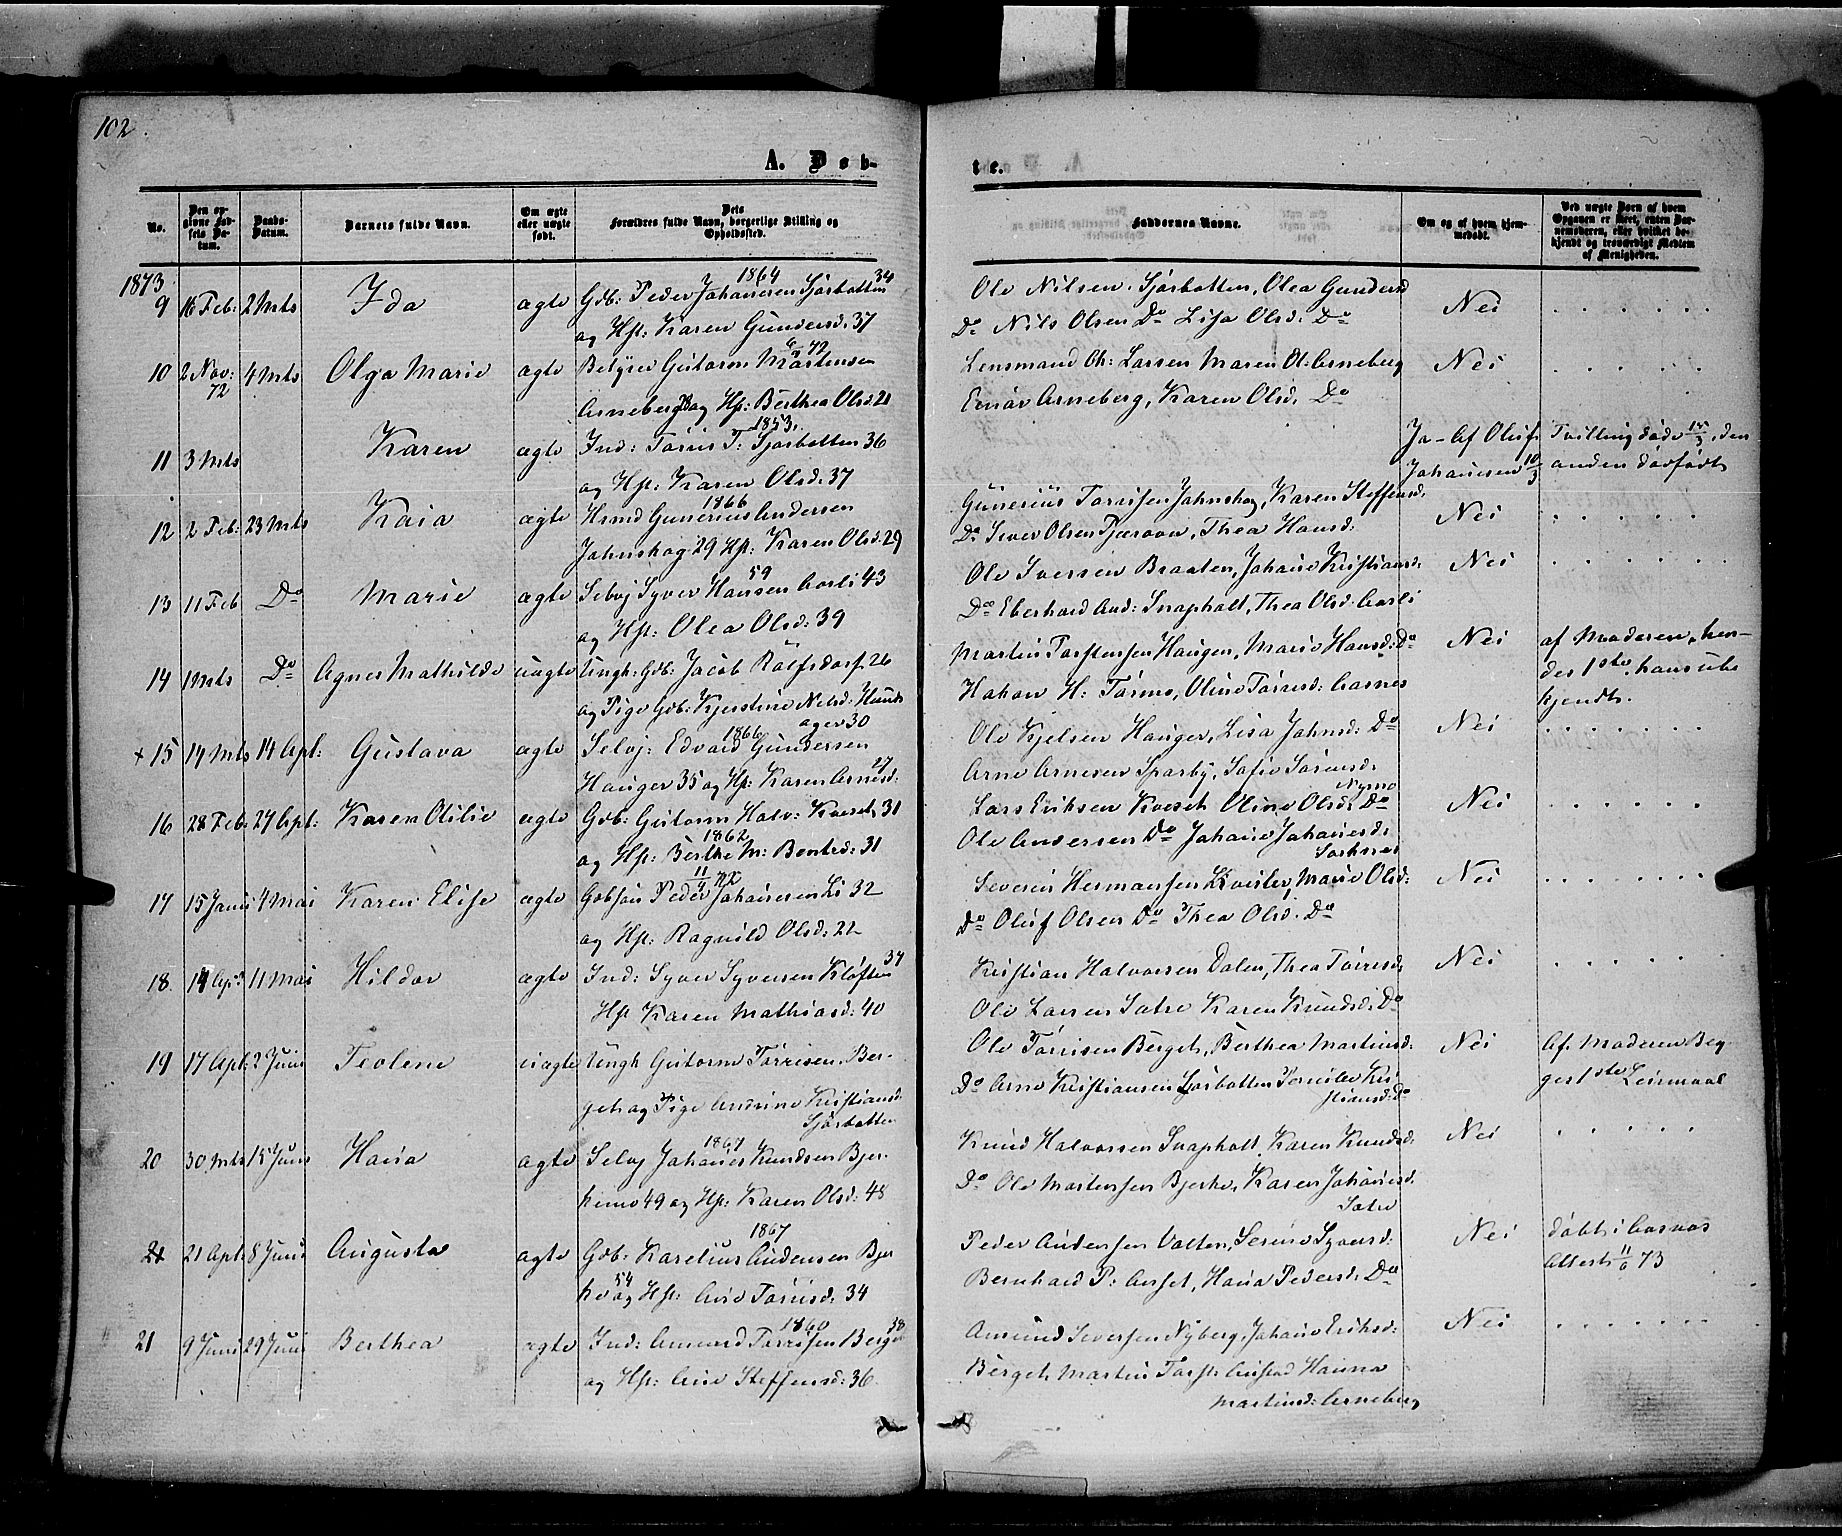 102.
A. Døb-
te.
No.
Den opgivne Fødsels Datum.
Daabs-Datum.
Barnets fulde Navn.
Om ægte eller uægte født.
Dets Forældres fulde Navn, borgerlige Stilling og Opholdssted.
Faddernes Navne.
Om og af hvem hjemmedøbt.
Ved uægte Børn af hvem Opgaven er skeet, enten Barnemoderen, eller hvilket bekjendt og troværdigt Medlem af Menigheden.
1873
9 16 Feb: 2 Mts Ida ægte Gdb: Peder Johannesen Sjørbotten 34 1864
og Hst: Karen Gundersd: 37
Ole Nilsen Sjørbotten, Olea Gundersd
Do Nils Olsen Do Lisa Olsd: Do
Nei
10 2 Nov: 72 4 Mts Olga Marie ægte Guttorm Mortensen
Arneberg og Hst: Berthea Olsd 21
Lensmand Ch: Larsen Maren O: Arneberg
Einar Arneberg, Karen Olsd. Do
Nei
11 3 Mts Karen ægte Ind: Tøris T: Sjørbotten 36 1853
og Hst: Karen Olsd: 37
Ja - Af Oluf
Johannesen 10/3
Tvilling døde 15/3, den
anden dødfødt
12 2 Feb: 23 Mts Kaia ægte Hsmd Gunerius Andersen 1866
Johnshag 29 Hst: Karen Olsd: 29
Gunerius Torrisen Johnshag, Karen Steffensd:
Do Siver Olsen, Thea Hansd:
Nei
13 11 Feb Do Marie ægte Selvj Syver Hansen Aarli 43 59
og Hst: Olea Olsd: 39
Ole Iversen Braaten, Johane Kristiansd:
Do Eberhard And: Snapholt, Thea Olsd: Aarli
Nei
14 1 Mts Do Agnes Mathilde uægte Ungk: Gdb: Jacob Rolfsdorf 26
og Pige Gdb: Kjerstine Nilsd:
ager 30
Martin Torstensen Haugen, Marie Hansd: Do
Hakon H: Tørmo, Oline Torresd: Aasnes
Nei
af Moderen, hen-
des 1ste, hans ube
kjendt.
+ 15 14 Mts 14 Apl: Gustava ægte Selvj: Edvard Gundersen 1866
Hauger 35 og Hst: Karen Arnesd: 27
Ole Kjelsen Hauger, Lisa Johnsd: Do
Arne Arnesen Sparby, Sofie Sørensd:
Nei
16 28 Feb: 27 Apl: Karen Otilie ægte Gdb: Guttorm Halv: Kveset 31
og Hst: Berthe M: Berntsd: 31 1862
Lars Eriksen Kveset Oline Olsd: Do
Ole Andersen Do Johane Johanesd:
Nei
17 15 Janu 4 Mai Karen Elise ægte Gdbsøn Peder Johannesen Li 32
og Hst: Ragnild Olsd: 22
Severin Hermansen Kvisler, Marie Olsd:
Do Oluf Olsen Do Thea Olsd. Do
Nei
18. 14 Apl 11 Mai Hildar ægte Ind: Syver Syversen Kløften 37
Hst Karen Mathiasd: 40
Kristian Halvorsen Dalen, Thea Torresd:
Ole Larsen Sætre Karen Knudsd: Do
Nei
19 17 Apl: 2 Juni Teoline uægte Ungk Guttorm Torrisen Ber-
get og Pige Andrine Kristiansd
Sjørbotten
Ole Torrisen Berget, Berthea Martinsd:
Do Arne Kristiansen Sjørbotten Pernille Kri
stiansd: Do
Nei
Af Moderen Beg-
ges 1ste Leiermaal
20 30 Mts 15 Juni Hana ægte Selvj Johanes Knudsen Bjer- 1867
hemo 49 og Hst: Karen Olsd: 48
Knud Halvorsen Snapholt, Karen Knudsd:
Do Ole Martensen Bjerke, Karen Johanesd:
Sætre
Nei
21 21 Apl: 8 Juni Augusta ægte Gdb: Karelius Audensen Bjer 1867
ke 54 og Hst: Ane Torrisd: 34
Peder Audensen Valten, Serine Syversd:
Bernhard P: Auset, Hana Pedersd: Do
Nei
døbt i Aasnes
Attest 11/6 73
21 9 Juni 29 Juni Berthea ægte Ind: Amund Torrisen Berget 38 1860
og Hst: Ane Steffensd: 36
Amund Seversen Nyberg, Johane Eriksd:
Berget, Martin Torst: Austad Hanna
Martinsd: Arneberg
Nei